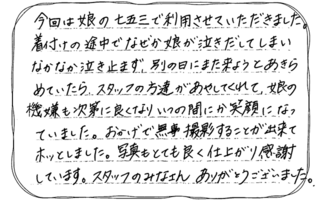 今回は娘の七五三で利用させていただきました。
着付けの途中でなぜか娘が泣きだしてしまい
なかなか泣き止まず、別の日にまた来ようとあきら
めていたら、スタッフの方達があやしてくれて、娘の
機嫌も次第に良くなりいつの間にか笑顔になっ
ていました。おかげで無事撮影することが出来て
ホッとしました。写真もとても良く仕上がり感謝
しています。スタッフのみなさん ありがとうございました。